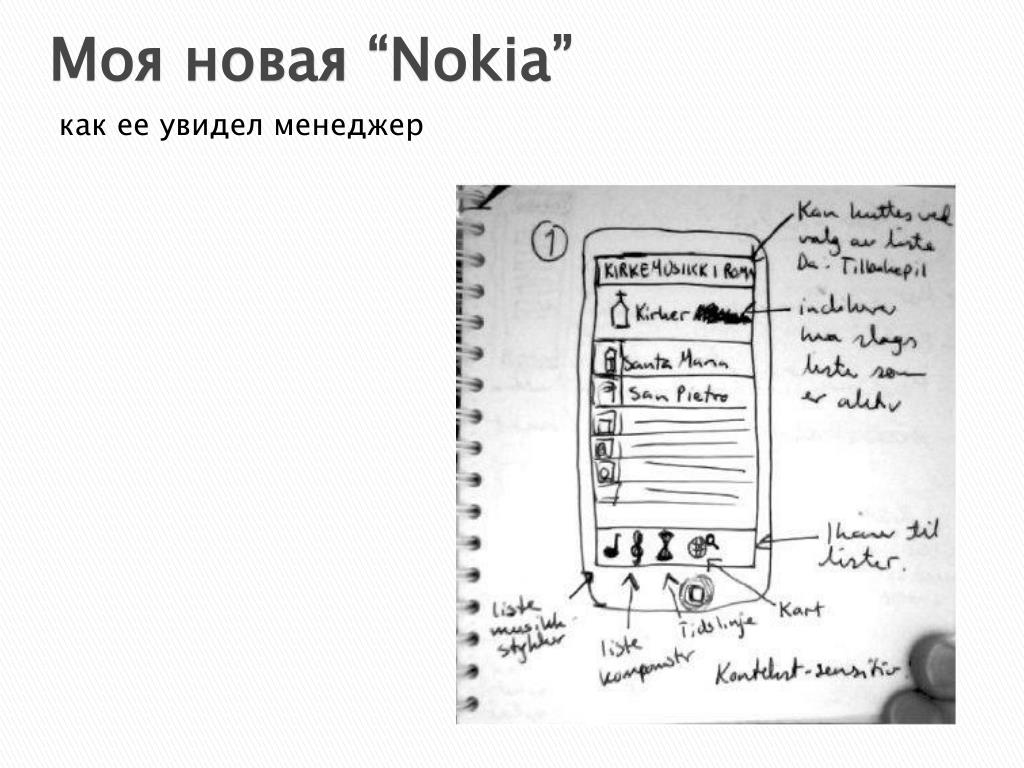 Моя новая “Nokia”
как ее увидел менеджер
1
Kan byttes ved
valg av liste
Da: Tilbakepil
KIRKEMUSIKK I ROMA
Kirker
hva slags
liste som
er aktiv
Santa Maria
San Pietro
Ikoner til
lister.
liste
musikk-
stykker
liste
komponister
Tidslinje
Kart
Kontekst-sensitiv!